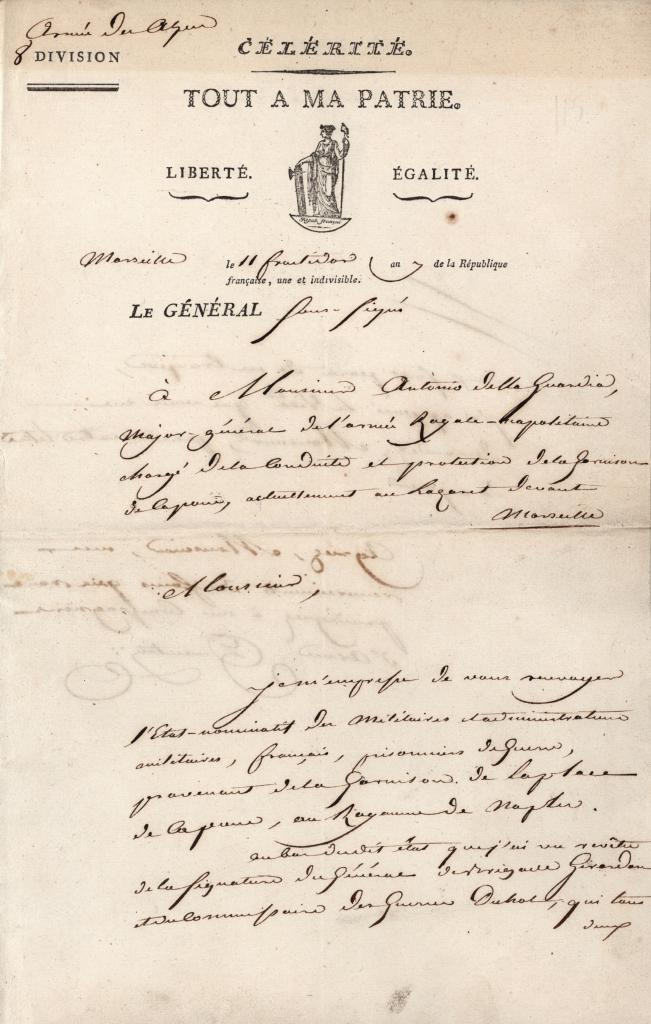 Armée des Alpes
8 DIVISION
CÉLÉRITÉ.
TOUT A MA PATRIE.
LIBERTÉ. ÉGALITÉ.
Marseille le 11 fructidor an 7 de la République
française, une et indivisible.
LE GÉNÉRAL sous-signé
à Monsieur Antonio della Guardia,
Major-général de l'armée Royale-napolitaine
chargé de la Conduite et protection de la Garnison
de Capoue, actuellement au Lazaret devant
Marseille
Monsieur,
je m'empresse de vous renvoyer
l'Etat-nominatif des Militaires et administrateurs
militaires, français, prisonniers de Guerre,
provenant de la Garnison de la place
de Capoue, au Royaume de Naples.
au bas du dit état que j'ai vu revêtu
de la signature du Général de Brigade Girardon
et du Commissaire des Guerres qui tous
deux